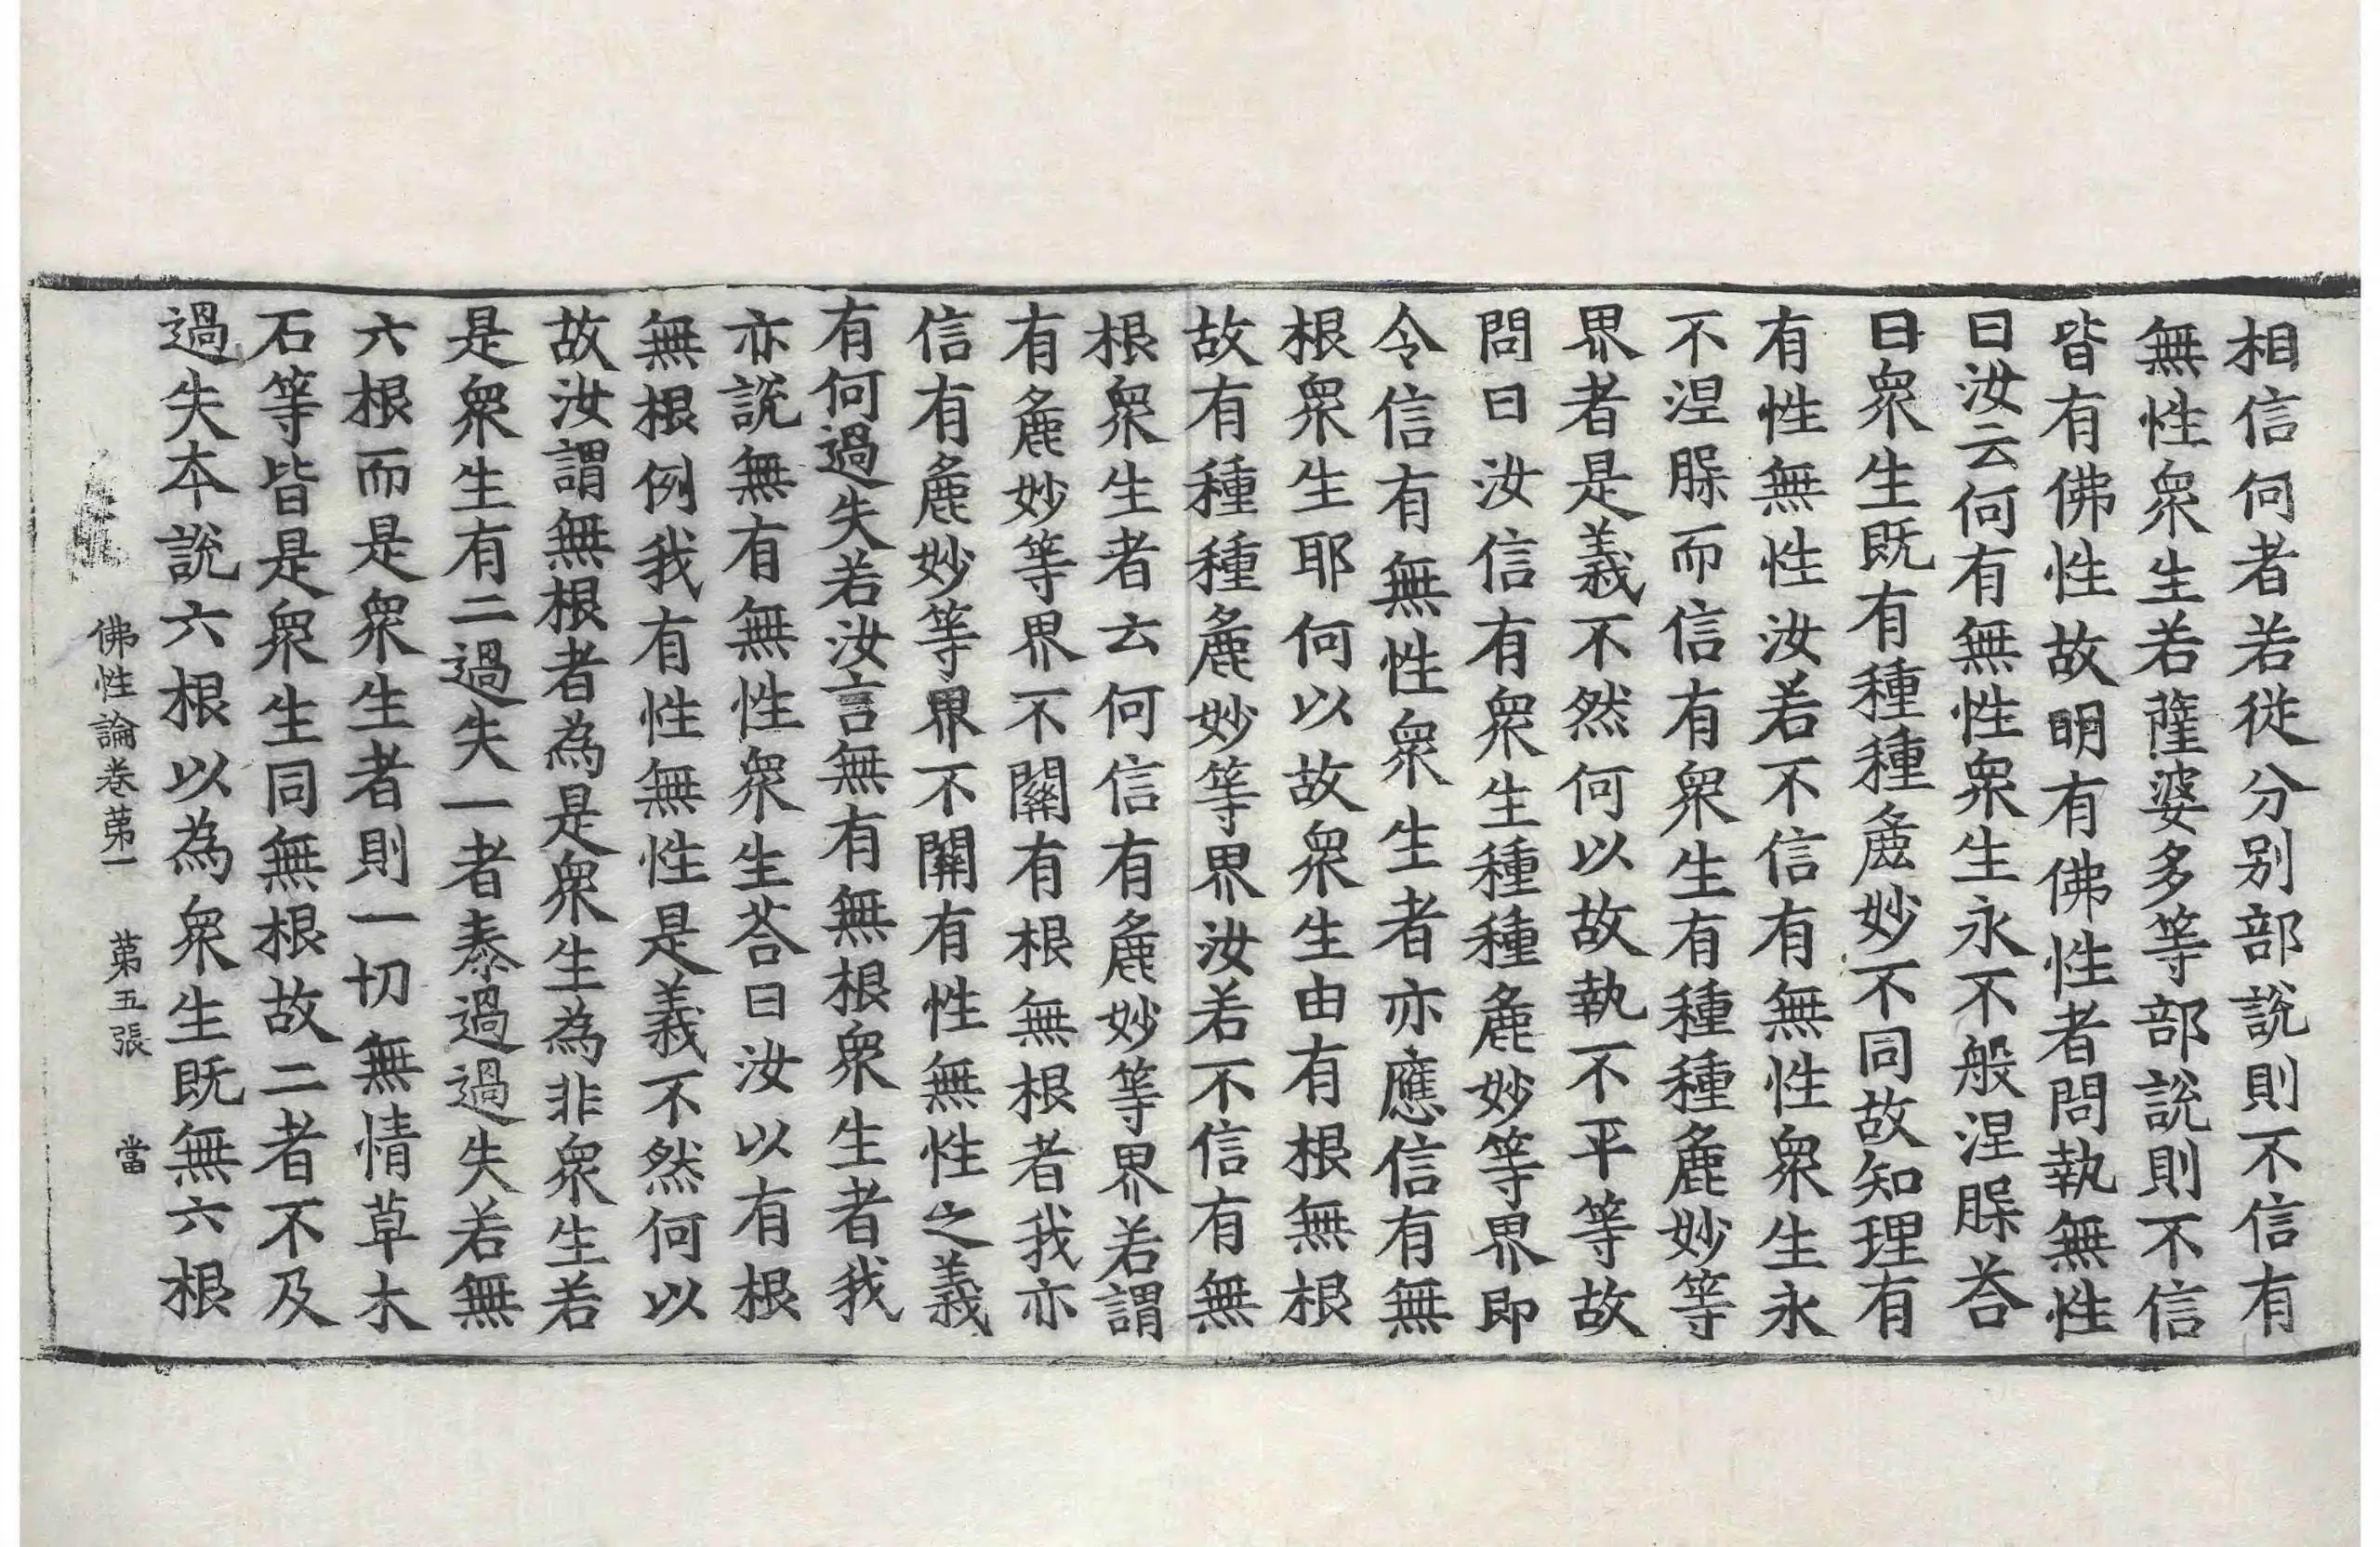 相信何者若從分別部說則不信有
無性衆生若薩婆多等部說則不信
皆有佛性故明有佛性者問執無性
曰汝云何有無性衆生永不般涅脲荅
曰衆生既有種種麁妙不同故知理有
有性無性汝若不信有無性衆生永
不涅脲而信有衆生有種種麁妙等
界者是義不然何以故執不平等故
問曰汝信有衆生種種麁妙等界即
令信有無性衆生者亦應信有無
根衆生耶何以故衆生由有根無根
故有種種麁妙等界汝若不信有無
根衆生者云何信有麁妙等界若謂
有麁妙等界不關有根無根者我亦
信有麁妙等界不關有性無性之義
有何過失若汝言無有無根衆生者我
亦說無有無性衆生荅曰汝以有根
無根例我有性無性是義不然何以
故汝謂無根者為是衆生為非衆生若
是衆生有二過失一者泰過過失若無
六根而是衆生者則一切無情草木
石等皆是衆生同無根故二者不及
過失本說六根以為衆生既無六根
佛性論卷苐一 苐五張 當